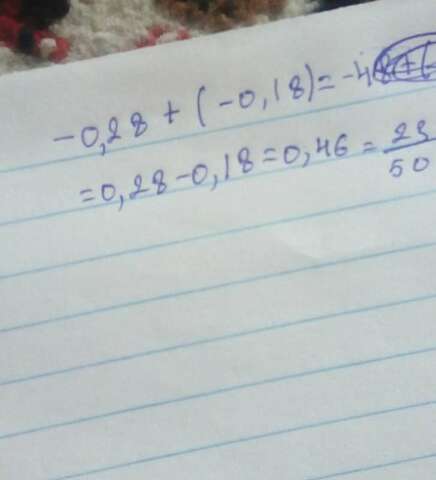 -0,28 + (-0,18) = -4
= 0,28 - 0,18 = 0,46 = 23/50